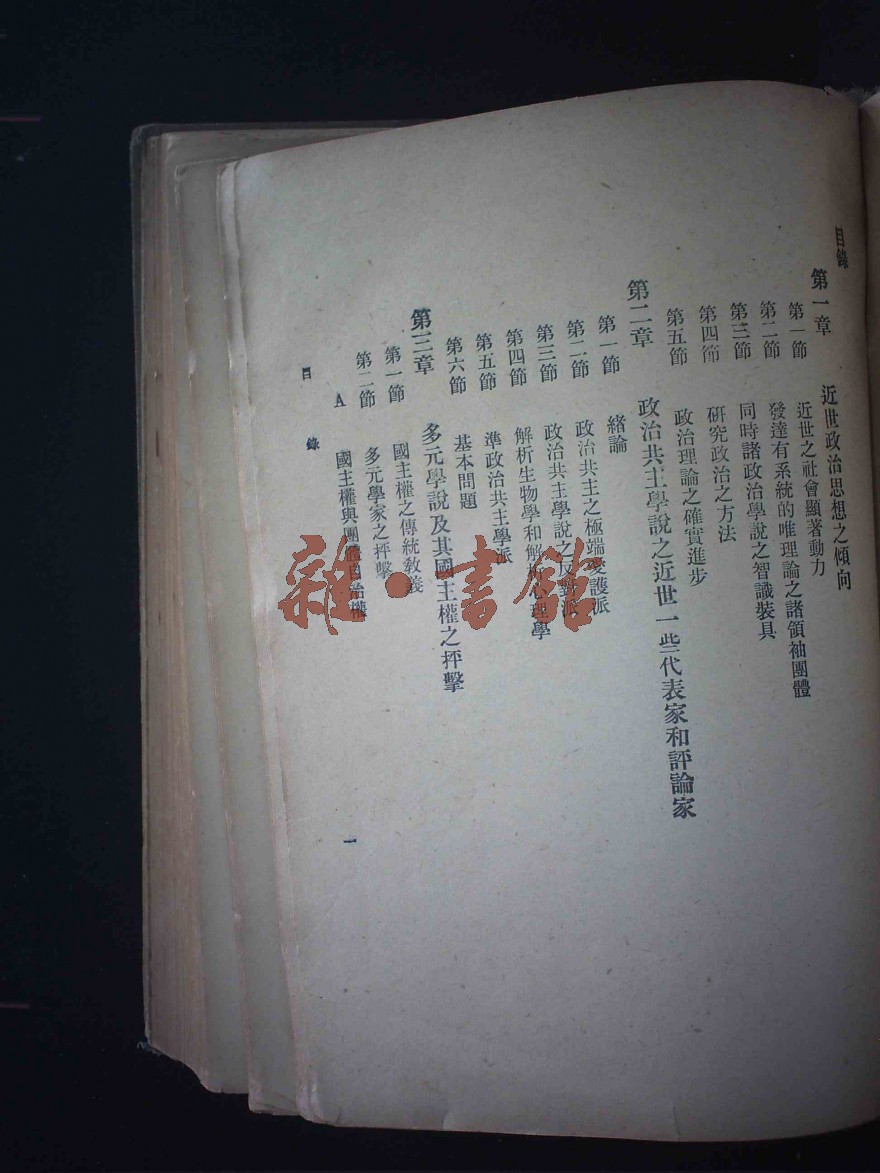 目錄
第一章 近世政治思想之傾向
第一節 近世之社會顯著動力
第二節 發達有系統的唯理論之諸領袖團體
第三節 同時諸政治學說之智識裝具
第四節 研究政治之方法
第五節 政治理論之確實進步
第二章 政治共主學說之近世一些代表家和評論家
第一節 緒論
第二節 政治共主之極端愛護派
第三節 政治共主學說之反對派
第四節 解析生物學和解析心理學
第五節 準政治共主學派
第六節 基本問題
第三章 多元學說及其國主權之抨擊
第一節 國主權之傳統教義
第二節 多元學家之抨擊
A 國主權與團體自治權
目錄
一
雜·書館